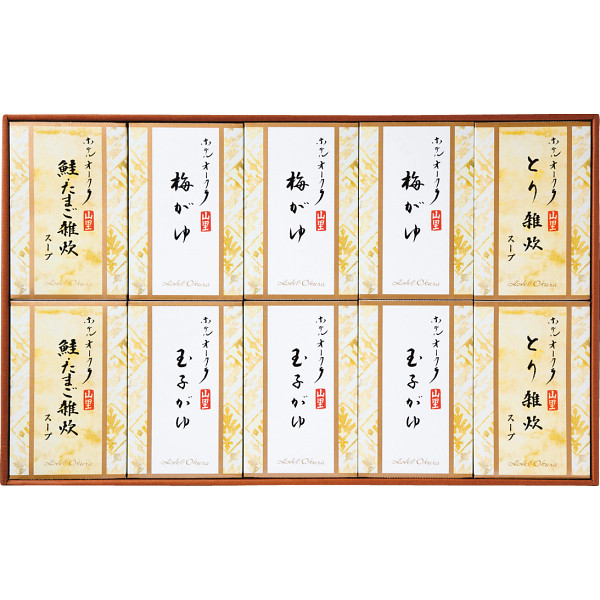 ホテルオークラ
山里
鮭・たまご雑炊
スープ
Hotel Okura
ホテルオークラ
山里
梅がゆ
Hotel Okura
ホテルオークラ
山里
梅がゆ
Hotel Okura
ホテルオークラ
山里
梅がゆ
Hotel Okura
ホテルオークラ
山里
とり雑炊
スープ
Hotel Okura
ホテルオークラ
山里
鮭・たまご雑炊
スープ
Hotel Okura
ホテルオークラ
山里
玉子がゆ
Hotel Okura
ホテルオークラ
山里
玉子がゆ
Hotel Okura
ホテルオークラ
山里
玉子がゆ
Hotel Okura
ホテルオークラ
山里
とり雑炊
スープ
Hotel Okura